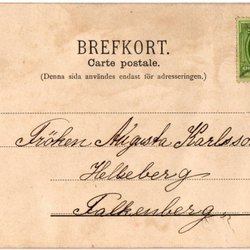 BREFKORT.
Carte postale.
(Denna sida användes endast för adresseringen.)
Fröken Augusta Karlsson
Helleberg
Falkenberg.